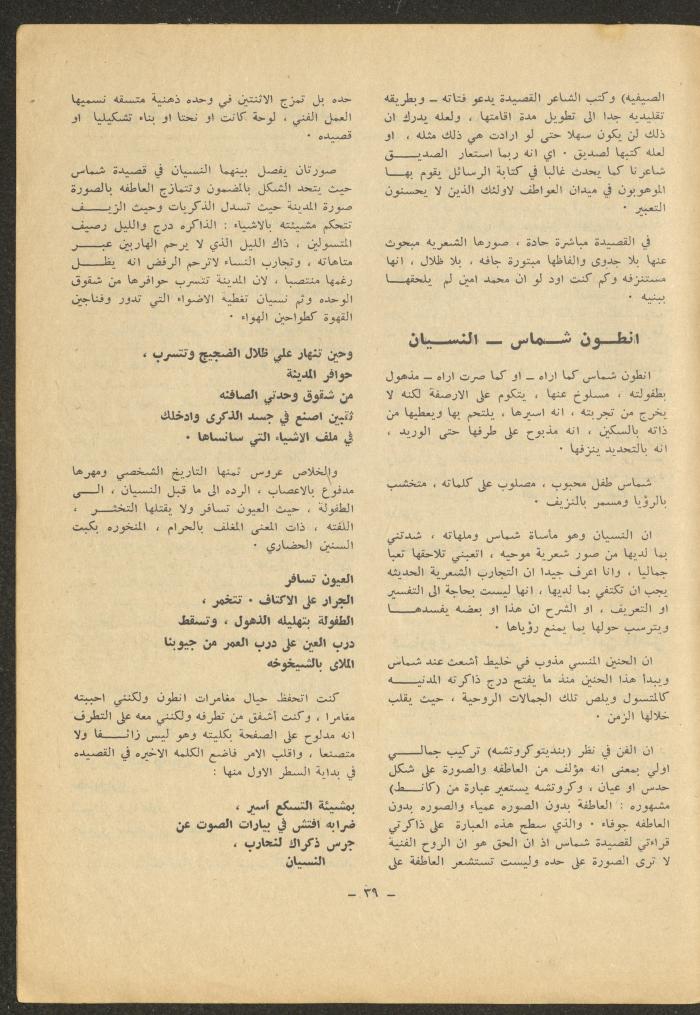 الصيفيه) وكتب الشاعر القصيدة يدعو فتاته ــ وبطريقه
تقليديه جدا الى تطويل مدة اقامتها ، ولعله يدرك ان
ذلك لن يكون سهلا حتى لو ارادت هي ذلك مثله ، او
لعله كتبها لصديق ٠ اي انه ربما استعار الصديــــق
شاعرنا كما يحدث غالبا في كتابة الرسائل يقوم بهــا
الموهوبون في ميدان العواطف لاولئك الذين لا يحسنون
التعبير ٠
في القصيدة مباشرة حادة ، صورها الشعريه مبحوث
عنها بلا جدوى والفاظها مبتورة جافه ، بلا ظلال ، انها
مستنزفه وكم كنت اود لو ان محمد امين لم يلحقهــا
ببنيه ٠
انطــون شـــماس ــ النســيان
انطون شماس كما اراه ــ او كما صرت اراه ــ مذهول
بطفولته ، مسلوخ عنها ، يتكوم على الارصفة لكنه لا
يخرج من تجربته ، انه اسيرها ، يلتحم بها ويعطيها من
ذاته بالسكين ، انه مذبوح على طرفها حتى الوريد ،
انه بالتحديد ينزفها ٠
شماس طفل محبوب ، مصلوب على كلماته ، متخشب
بالرؤيا ومسمر بالنزيف ٠
ان النسيان وهو مأساة شماس وملهاته ، شدتني
بما لديها من صور شعرية موحيه ، اتعبني تلاحقها تعبا
جماليا ، وانا اعرف جيدا ان التجارب الشعرية الحديثه
يجب ان تكتفي بما لديها ، انها ليست بحاجة الى التفسير
او التعريف ، او الشرح ان هذا او بعضه يفسدهــــا
ويترسب حولها بما يمنع رؤياها ٠
ان الحنين المنسي مذوب في خليط أشعت عند شماس
ويبدأ هذا الحنين منذ ما يفتح درج ذاكرته المدنيـــه
كالمتسول ويلص تلك الجمالات الروحية ، حيث يقلب
خلالها الزمن ٠
ان الفن في نظر (بنديتوكروتشه) تركيب جمالــــي
اولي بمعنى انه مؤلف من العاطفه والصورة على شكل
حدس او عيان ، وكروتشه يستعير عبارة من (كانــط)
مشهوره : العاطفة بدون الصوره عمياء والصوره بدون
العاطفه جوفاء ٠ والذي سطح هذه العبارة على ذاكرتي
قراءتي لقصيدة شماس اذ ان الحق هو ان الروح الفنية
لا ترى الصورة على حده وليست تستشعر العاطفة على
حده بل تمزج الاثنتين في وحده ذهنية متسقه نسميها
العمل الفني ، لوحة كانت او نحتا او بناء تشكيليا او
قصيده ٠
صورتان يفصل بينهما النسيان في قصيدة شماس
حيث يتحد الشكل بالمضمون وتتمازج العاطفه بالصورة
صورة المدينة حيث تسدل الذكريات وحيث الزيــــف
تتحكم مشيئته بالاشياء : الذاكره درج والليل رصيف
المتسولين ، ذاك الليل الذي لا يرحم الهاربين عبـــر
متاهاته ، وتجارب النساء لاترحم الرفض انه يظـــل
رغمها منتصبا ، لان المدينة تتسرب حوافرها من شقوق
الوحده وثم نسيان تغطية الاضواء التي تدور وفناجين
القهوة كطواحين الهواء ٠
وحين تنهار علي ظلال الضجيج وتتسرب ،
حوافر المدينة
من شقوق وحدتي الصافنه
تثبين اصنع في جسد الذكرى وادخلك
في ملف الاشياء التي سانساها ٠
والخلاص عروس ثمنها التاريخ الشخصي ومهرها
مدفوع بالاعصاب ، الرده الى ما قبل النسيان ، الـــى
الطفولة ، حيث العيون تسافر ولا يقتلها التخثــر ،
اللفته ، ذات المعنى المغلف بالحرام ، المنخوره بكبت
السنين الحضاري ٠
العيون تسافر
الجرار على الاكتاف ٠ تتخمر ،
الطفولة بتهليله الذهول ، وتسقط
درب العين على درب العمر من جيوبنا
الملاى بالشيخوخه
كنت اتحفظ حيال مغامرات انطون ولكنني احببته
مغامرا ، وكنت أشفق من تطرفه ولكنني معه على التطرف
انه مدلوح على الصفحة بكليته وهو ليس زائـــفا ولا
متصنعا ، واقلب الامر فاضع الكلمه الاخيره في القصيده
في بداية السطر الاول منها :
بمشيئة التسكع أسير ،
ضرابه افتش في بيارات الصوت عن
جرس ذكراك لنحارب ،
النسيان
ــ ٣٩ ــ